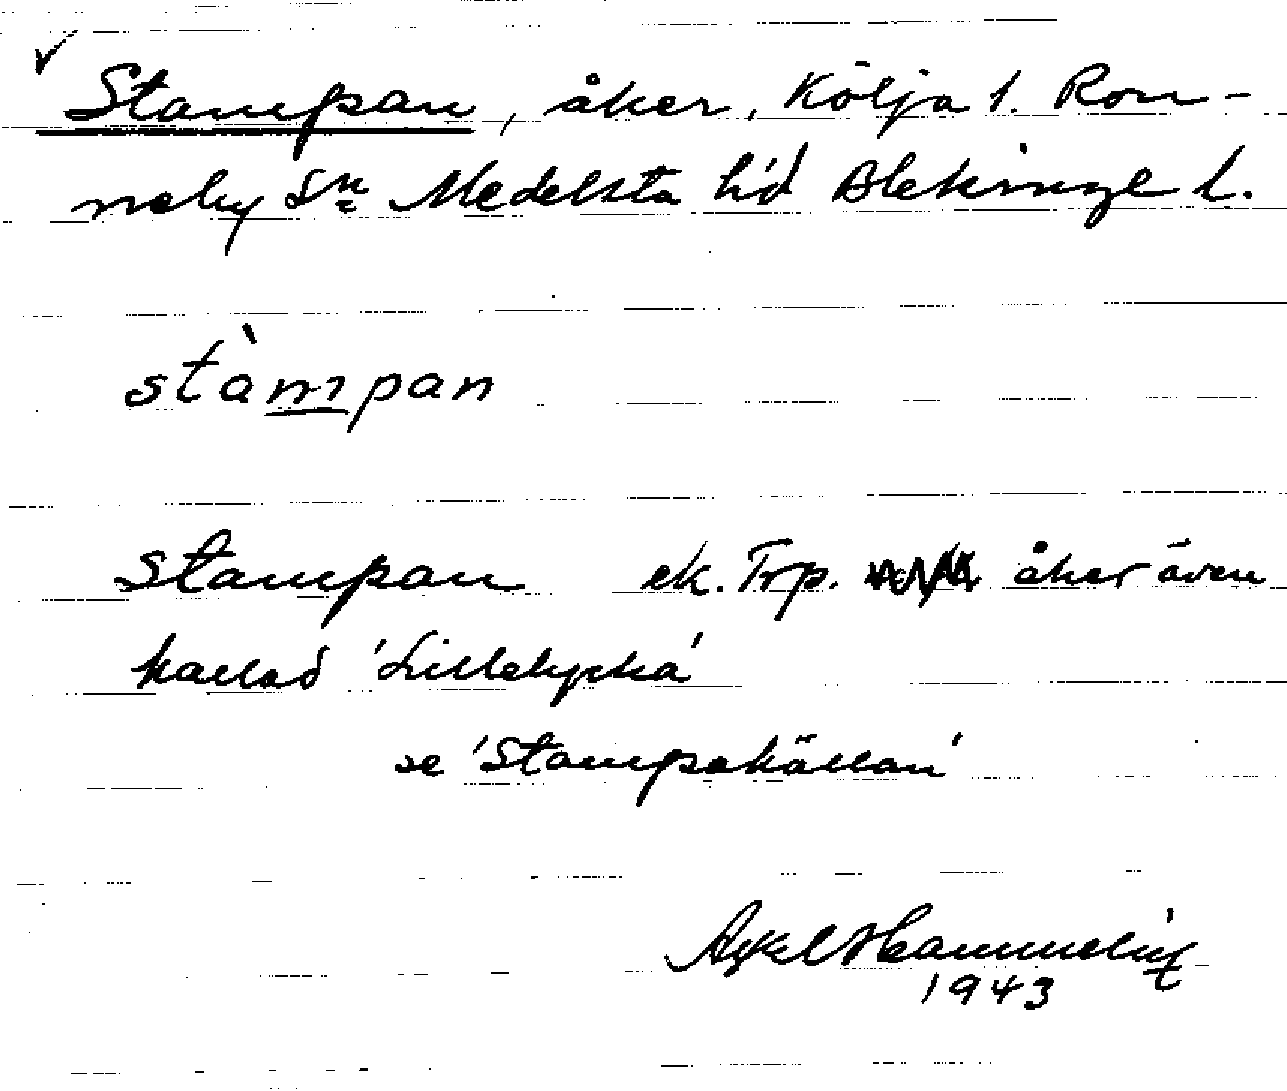 Stampan, åker, Kölja 1. Ron-
neby Sn Medelsta hd Blekinge l.
stàmpan
Stampan ek. Trp. åker även
kallad 'Lillelycka'
se 'Stampakällan'
Axel
1943